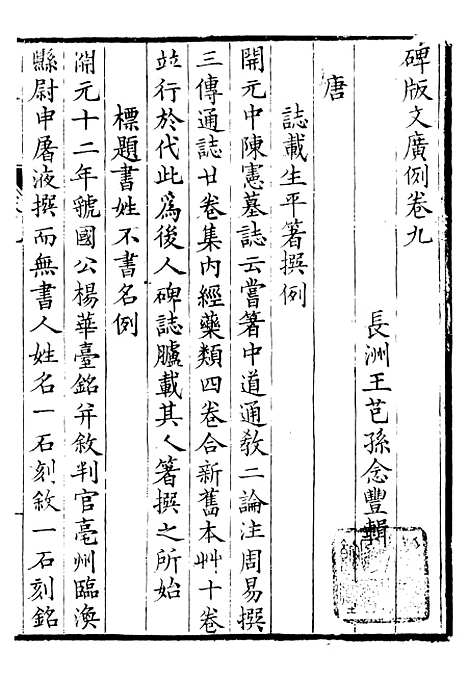 碑版文廣例卷九
長洲王芑孫念豐輯
唐
誌載生平箸撰例
開元中陳憲墓誌云嘗箸中道通敎二論注周易撰
三傳通誌廿卷集內經藥類四卷合新舊本艸十卷
竝行於代此爲後人碑誌臚載其人箸撰之所始
標題書姓不書名例
開元十二年虢國公楊華臺銘幷敘判官亳州臨渙
縣尉申屠液撰而無書人姓名一石刻敘一石刻銘